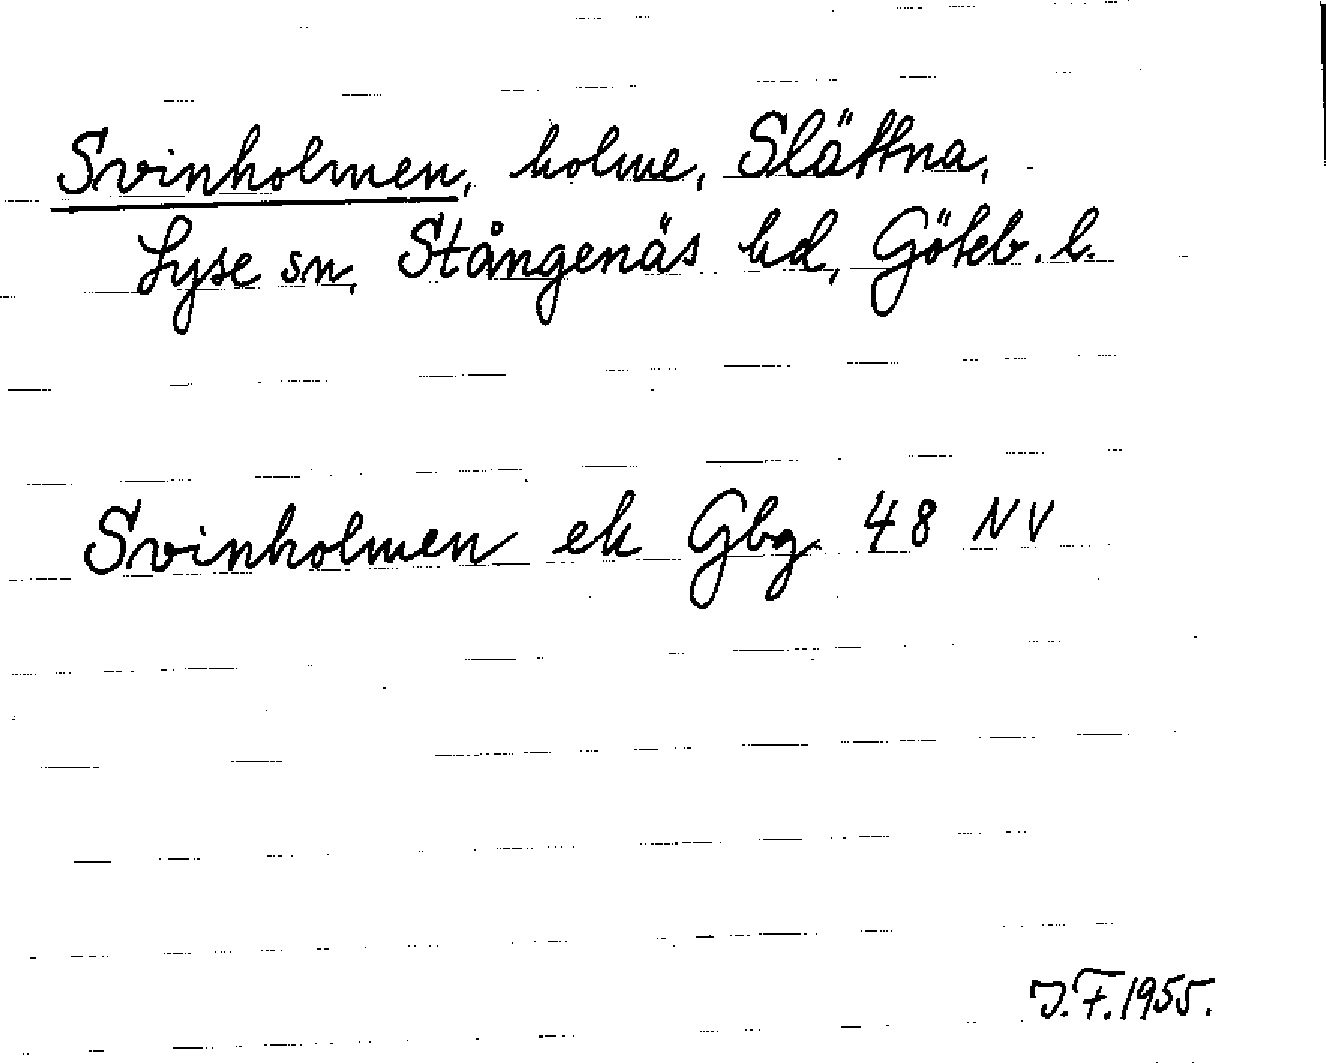 Svinholmen, holme, Slättna,
Lyse sn, Stångenäs hd, Göteb. l.
Svinholmen ek Gbg 48 NV
J.F. 1955.